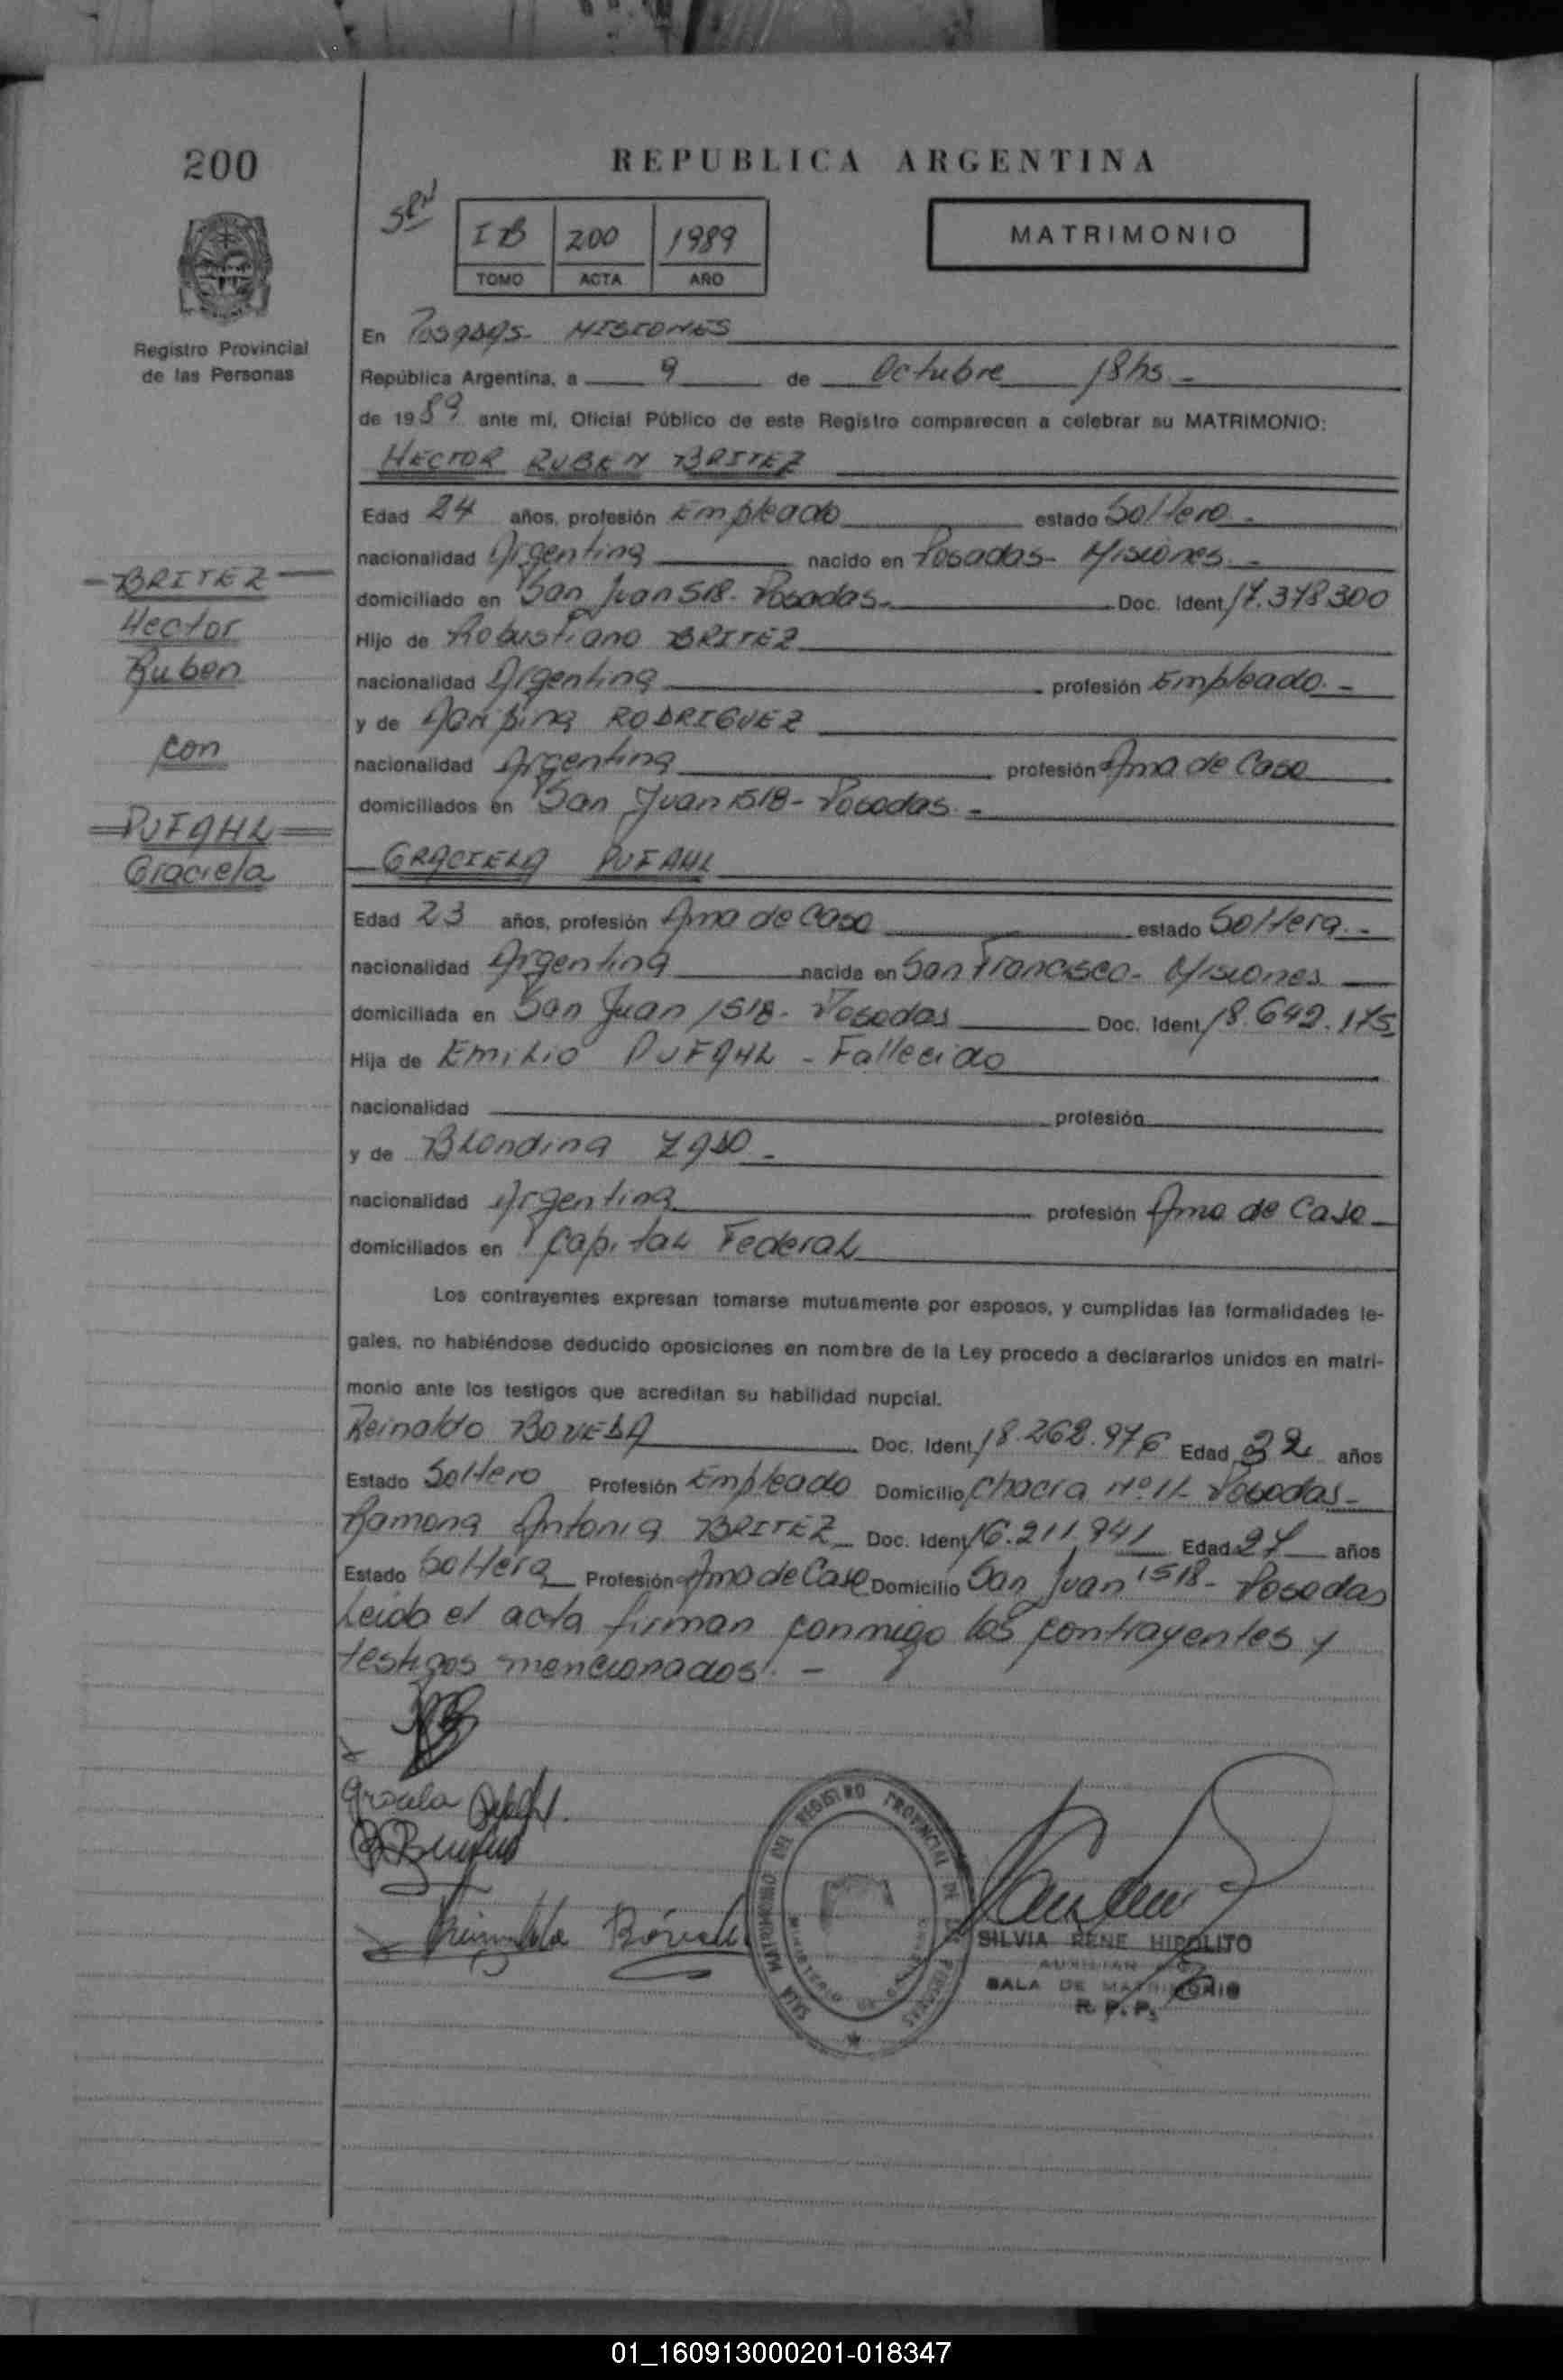 200
REPUBLICA ARGENTINA
I B 200 1989
TOMO ACTA AÑO
MATRIMONIO
Registro Provincial
de las Personas
En Posadas - MISIONES
República Argentina, a 9 de Octubre 18hs -
de 1989 ante mi, Oficial Público de este Registro comparecen a celebrar su MATRIMONIO:
HECTOR RUBEN BRITEZ
Edad 24 años, profesión Empleado estado Soltero -
nacionalidad Argentina nacido en Posadas - Misiones. -
domiciliado en San Juan 518 - Posadas. Doc. Ident. 17.378300
Hijo de Robustiano BRITEZ
nacionalidad Argentina profesión Empleado. -
y de RODRIGUEZ
nacionalidad Argentina profesión Ama de Casa
domiciliados en San Juan 1518 - Posadas. -
- BRITEZ -
Hector
Ruben
con
PUFAHL
Graciela
GRACIELA PUFAHL
Edad 23 años, profesión Ama de Casa estado Soltera. -
nacionalidad Argentina nacida en San Francisco - Misiones
domiciliada en San Juan 1518 - Posadas Doc. Ident. 18.642.175
Hija de Emilio PUFAHL - Fallecido
nacionalidad profesión
y de Blondina -
nacionalidad Argentina profesión Ama de Casa
domiciliados en Capital Federal
Los contrayentes expresan tomarse mutuamente por esposos, y cumplidas las formalidades le-
gales, no habiéndose deducido oposiciones en nombre de la Ley procedo a declararlos unidos en matri-
monio ante los testigos que acreditan su habilidad nupcial.
Reinaldo BOVEDA Doc. Ident. 18.268.976 Edad 32 años
Estado Soltero Profesión Empleado Domicilio Chacra Nº 11 Posadas -
Ramona Antonia BRITEZ Doc. Ident. 16.211.941 Edad 27 años
Estado Soltera Profesión Ama de Casa Domicilio San Juan 1518 - Posadas
Leido el acta firman conmigo los contrayentes y
testigos mencionados. -
SALA MATRIMONIO DEL REGISTRO PROVINCIAL DE LAS PERSONAS
SILVIA RENE HIPOLITO
AUXILIAR
SALA DE MATRIMONIO
R. P. P.
01_160913000201-018347